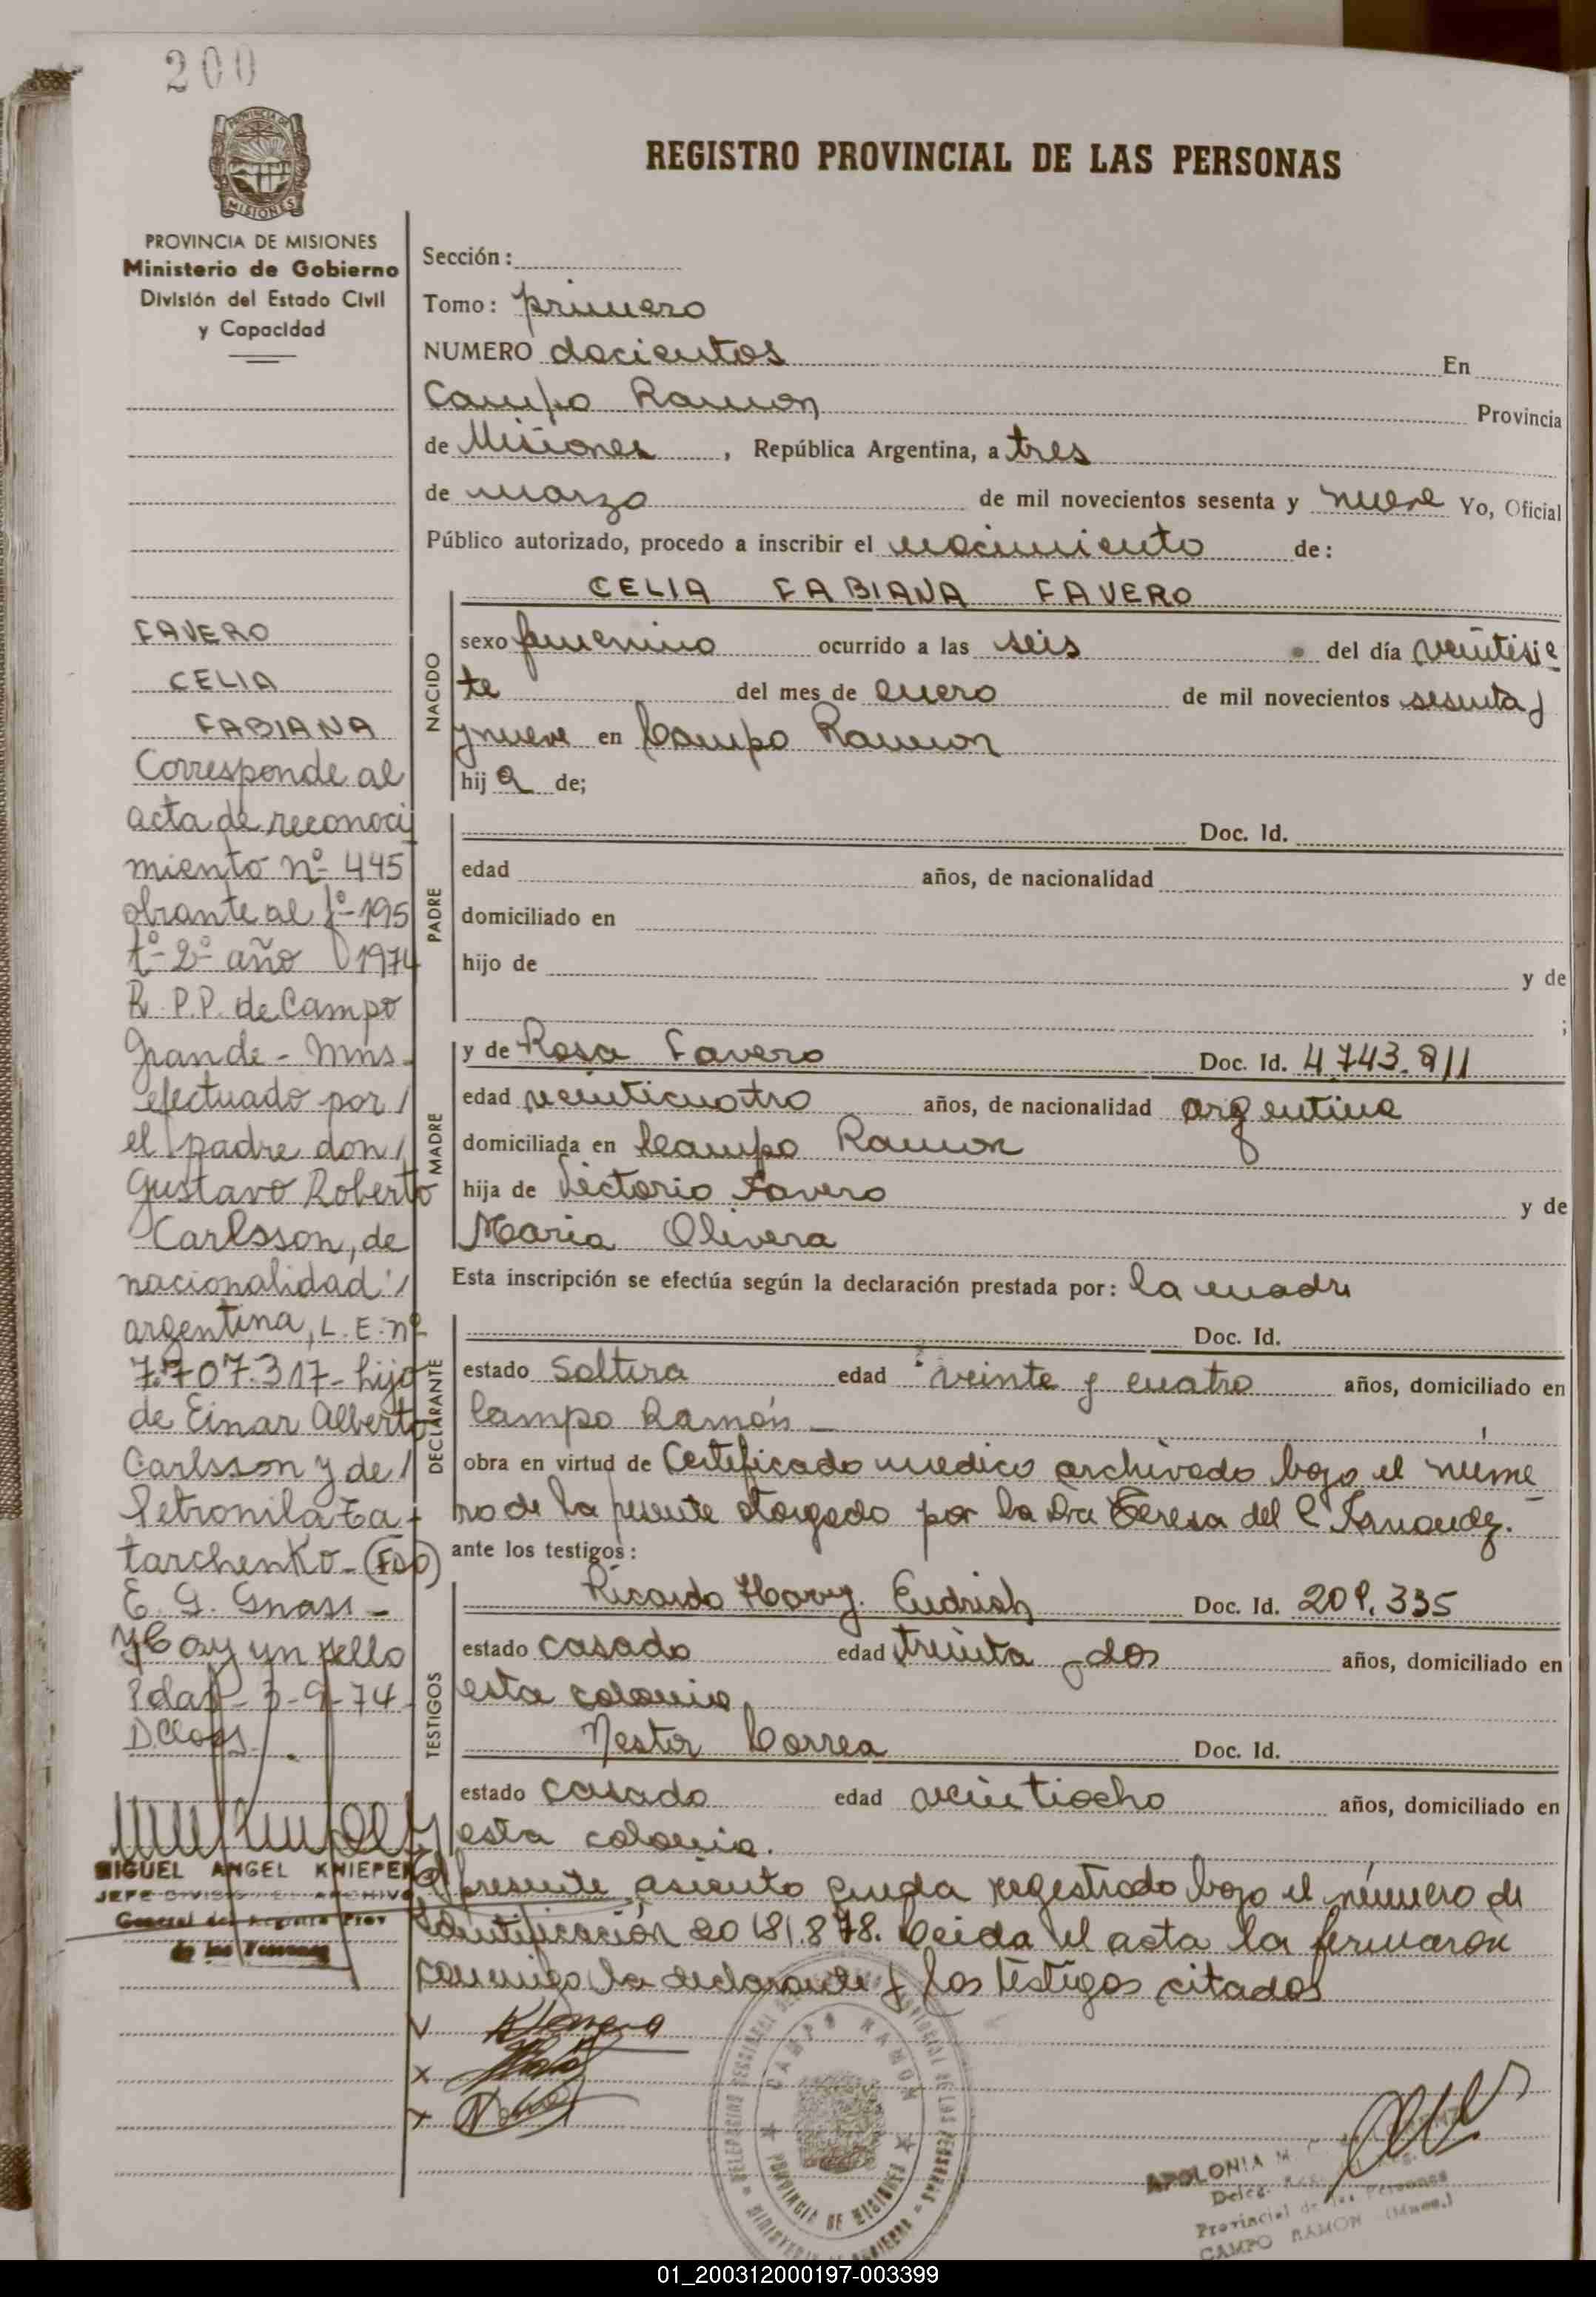 200
PROVINCIA DE MISIONES
REGISTRO PROVINCIAL DE LAS PERSONAS
PROVINCIA DE MISIONES
Ministerio de Gobierno
División del Estado Civil
y Capacidad
FAVERO
CELIA
FABIANA
Corresponde al
acta de reconoci
miento nº 445
obrante al fº 195
tº 2º año 1974
R. P.P. de Campo
Grande - Mns.
efectuado por /
el padre don /
Gustavo Roberto
Carlsson, de
nacionalidad /
argentina, L. E. nº
7.707.317- hijo
de Einar Alberto
Carlsson y de /
Petronila Ta-
tarchenko - (Fdo)
E. G.
Hay un sello
3-9-74
MIGUEL ANGEL KNIEPER
JEFE DIVISION ARCHIVO
General del Registro Prov
de las Personas
Sección:
Tomo: primero
NUMERO docientos En
Campo Ramon Provincia
de Misiones, República Argentina, a tres
de marzo de mil novecientos sesenta y nueve Yo, Oficial
Público autorizado, procedo a inscribir el nacimiento de:
NACIDO
CELIA FABIANA FAVERO
sexo femenino ocurrido a las seis del día veintisie
te del mes de enero de mil novecientos sesenta y
y nueve en Campo Ramon
hija de;
PADRE
Doc. Id.
edad años, de nacionalidad
domiciliado en
hijo de y de
;
MADRE
y de Rosa Favero Doc. Id. 4.743.911
edad veinticuatro años, de nacionalidad argentina
domiciliada en Campo Ramon
hija de Victorio Favero y de
Maria Olivera
Esta inscripción se efectúa según la declaración prestada por: la madre
DECLARANTE
Doc. Id.
estado Soltera edad veinte y cuatro años, domiciliado en
Campo Ramón
obra en virtud de Certificado medico archivado bajo el nume
ro de la presente otorgado por la Dra Teresa del C. Fernandez.
ante los testigos:
TESTIGOS
Ricardo Doc. Id. 209.335
estado casado edad treinta y dos años, domiciliado en
esta colonia
Nestor Correa Doc. Id.
estado casado edad veintiocho años, domiciliado en
esta colonia.
El presente asiento queda registrado bajo el número de
identificación 20.181.878. Leida el acta la firmaron
conmigo la declarante y los testigos citados
CAMPO RAMON
PROVINCIA DE MISIONES
APOLONIA M
Deleg. Reg.
Provincial de las Personas
CAMPO RAMON (Mnes.)
01_200312000197-003399